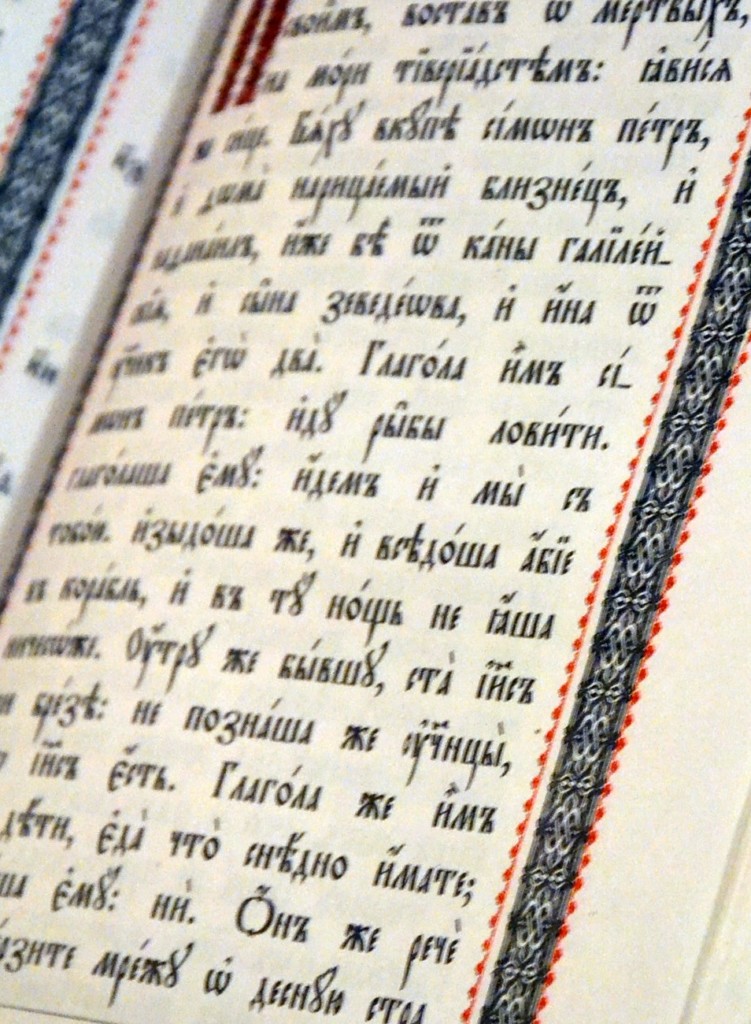 свои̑мъ, воста́въ ѿ ме́ртвыхъ,
на мо́ри тїверїа́дстѣмъ: ꙗ҆ви́сѧ
же си́це. Бѧ́хꙋ вкꙋ́пѣ сі́мѡнъ пе́тръ,
и҆ ѳѡма̀ нарица́емый близне́цъ, и҆
наѳана́илъ, и҆́же бѣ̀ ѿ ка́ны галїле́й-
скїѧ, и҆ сы̑на зеведе́ѡва, и҆ и҆́на ѿ
ᲂу҆чн҃къ є҆гѡ̀ два̀. Глаго́ла и҆̀мъ сі́-
мѡнъ пе́тръ: и҆дꙋ̀ ры̑бы лови́ти.
глаго́лаша є҆мꙋ̀: и҆́демъ и҆ мы̀ съ
тобо́ю. и҆зыдо́ша же, и҆ всѣдо́ша а҆́бїе
въ кора́бль, и҆ въ тꙋ̀ но́щь не ꙗ҆́ша
ничесѡ́же. Оу҆́трꙋ же бы́вшꙋ, ста̀ і҆и҃съ
при бре́зѣ: не позна́ша же ᲂу҆чн҃цы̀,
і҆и҃съ є҆́сть. Глаго́ла же и҆̀мъ
дѣ́ти, є҆да̀ что̀ снѣ́дно и҆́мате;
є҆мꙋ̀: нѝ. Ѻ҆́нъ же речѐ
мре́жꙋ ѡ҆ деснꙋ́ю стра